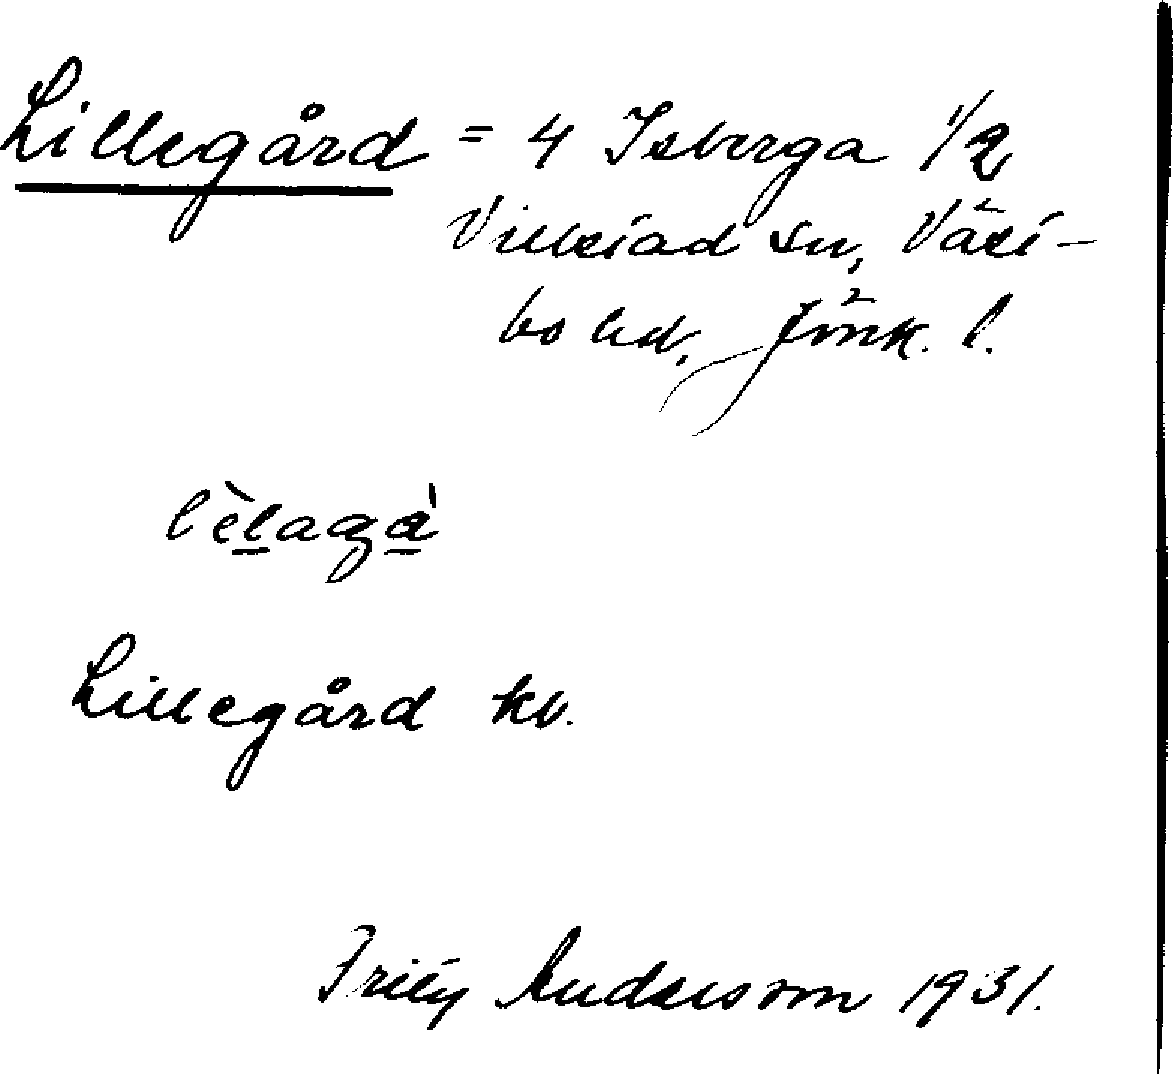 Lillegård = 4 Isberga 1/2
Villstad sn, Väst-
bo hd, Jönk. l.
lèlagà
Lillegård kb.
Andersson 1931.